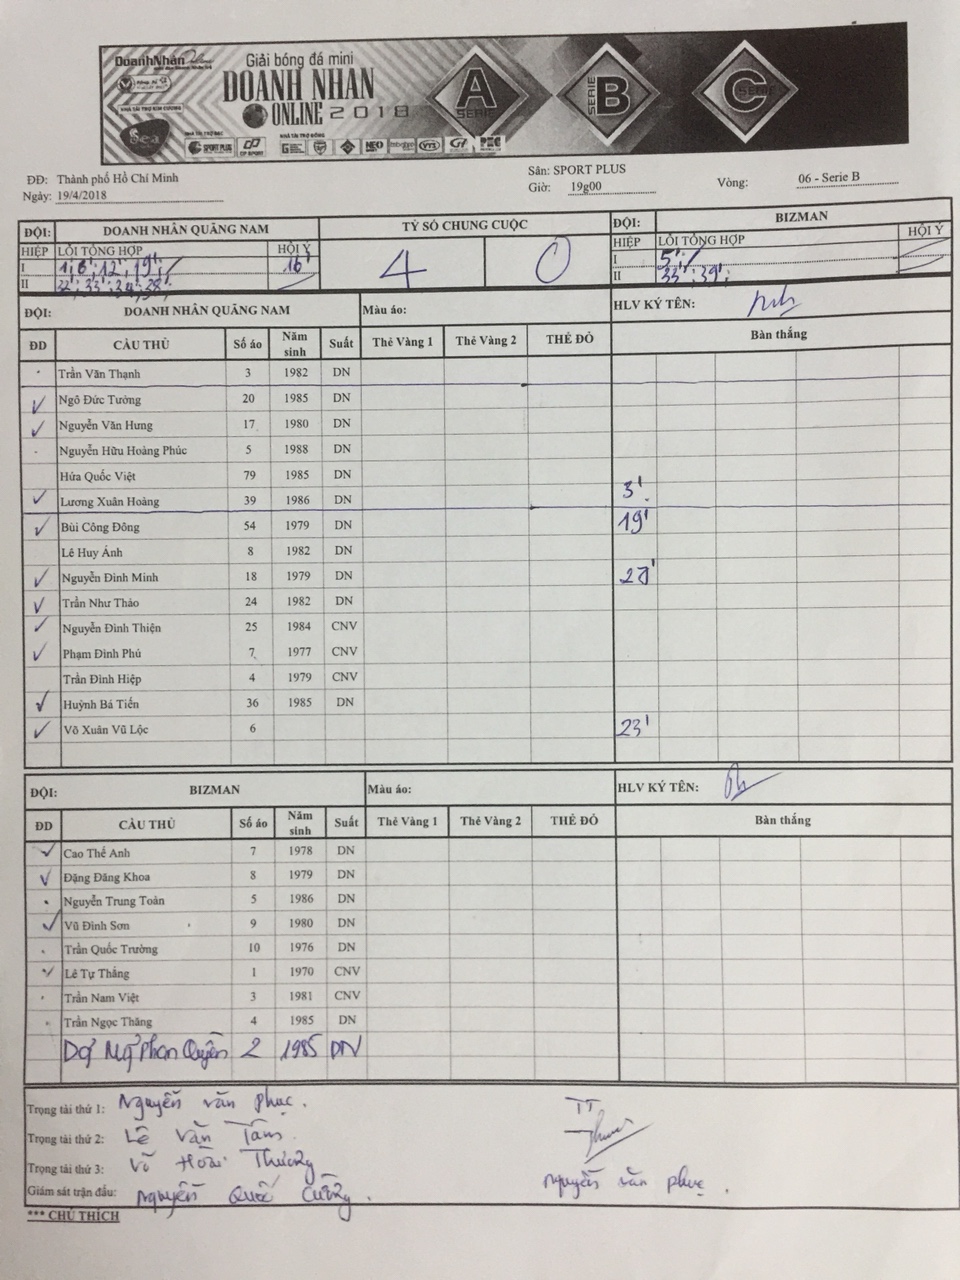 DoanhNhân
Giải bóng đá mini
DOANH NHAN
ONLINE 2018
A SERIE
SERIE B
C SERIE
NHÀ TÀI TRỢ KIM CƯƠNG
Sea
NHÀ TÀI TRỢ BẠC
NHÀ TÀI TRỢ ĐỒNG
SPORT PLUS
CP SPORT
NEO
VYS
ĐĐ: Thành phố Hồ Chí Minh Sân: SPORT PLUS
Ngày: 19/4/2018 Giờ: 19g00 Vòng: 06 - Serie B
ĐỘI: DOANH NHÂN QUẢNG NAM TỶ SỐ CHUNG CUỘC ĐỘI: BIZMAN
HIỆP LỖI TỔNG HỢP HỘI Ý 4 0 HIỆP LỖI TỔNG HỢP HỘI Ý
I 1; 6'; 12'; 19'; 16' I 5';
II 32'; 33'; 34'; 38'. II 33'; 39';
ĐỘI: DOANH NHÂN QUẢNG NAM Màu áo: HLV KÝ TÊN:
ĐD CẦU THỦ Số áo Năm sinh Suất Thẻ Vàng 1 Thẻ Vàng 2 THẺ ĐỎ Bàn thắng
Trần Văn Thạnh 3 1982 DN
✓ Ngô Đức Tưởng 20 1985 DN
✓ Nguyễn Văn Hưng 17 1980 DN
Nguyễn Hữu Hoàng Phúc 5 1988 DN
Hứa Quốc Việt 79 1985 DN
✓ Lương Xuân Hoàng 39 1986 DN 3'
✓ Bùi Công Đông 54 1979 DN 19'
Lê Huy Ánh 8 1982 DN
✓ Nguyễn Đình Minh 18 1979 DN
✓ Trần Như Thảo 24 1982 DN
✓ Nguyễn Đình Thiện 25 1984 CNV
✓ Phạm Đình Phú 7 1977 CNV
Trần Đình Hiệp 4 1979 CNV
✓ Huỳnh Bá Tiến 36 1985 DN
✓ Võ Xuân Vũ Lộc 6 23'
ĐỘI: BIZMAN Màu áo: HLV KÝ TÊN:
ĐD CẦU THỦ Số áo Năm sinh Suất Thẻ Vàng 1 Thẻ Vàng 2 THẺ ĐỎ Bàn thắng
✓ Cao Thế Anh 7 1978 DN
✓ Đặng Đăng Khoa 8 1979 DN
Nguyễn Trung Toàn 5 1986 DN
✓ Vũ Đình Sơn 9 1980 DN
Trần Quốc Trường 10 1976 DN
✓ Lê Tự Thắng 1 1970 CNV
Trần Nam Việt 3 1981 CNV
Trần Ngọc Thăng 4 1985 DN
Quyền 2 1985 DN
Trọng tài thứ 1: Nguyễn văn phục. TT
Trọng tài thứ 2: Lê Văn Tám.
Trọng tài thứ 3: Võ Hoài Thương
Giám sát trận đấu: Nguyễn Quốc Cường. Nguyễn văn phục.
*** CHÚ THÍCH